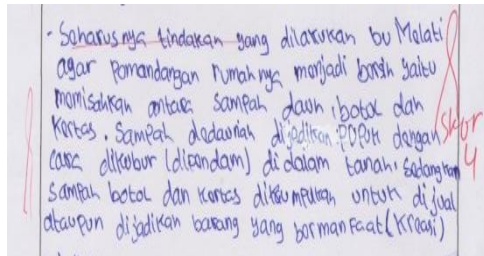 - Seharusnya tindakan yang dilakukan bu Melati
agar pemandangan rumahnya menjadi bersih yaitu
memisahkan antara sampah daun, botol dan
kertas. Sampah dedaunan dijadikan pupuk dengan
cara dikubur (dipendam) di dalam tanah. Sedangkan
sampah botol dan kertas dikumpulkan untuk dijual
ataupun dijadikan barang yang bermanfaat (kreasi)
skor
4